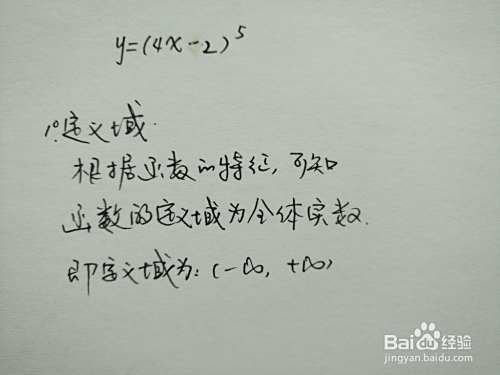 y=(4x-2)⁵
1°.定义域.
根据函数的特征,可知
函数的定义域为全体实数.
即定义域为:(-∞,+∞)
Bai du 经验
jingyan.baidu.com